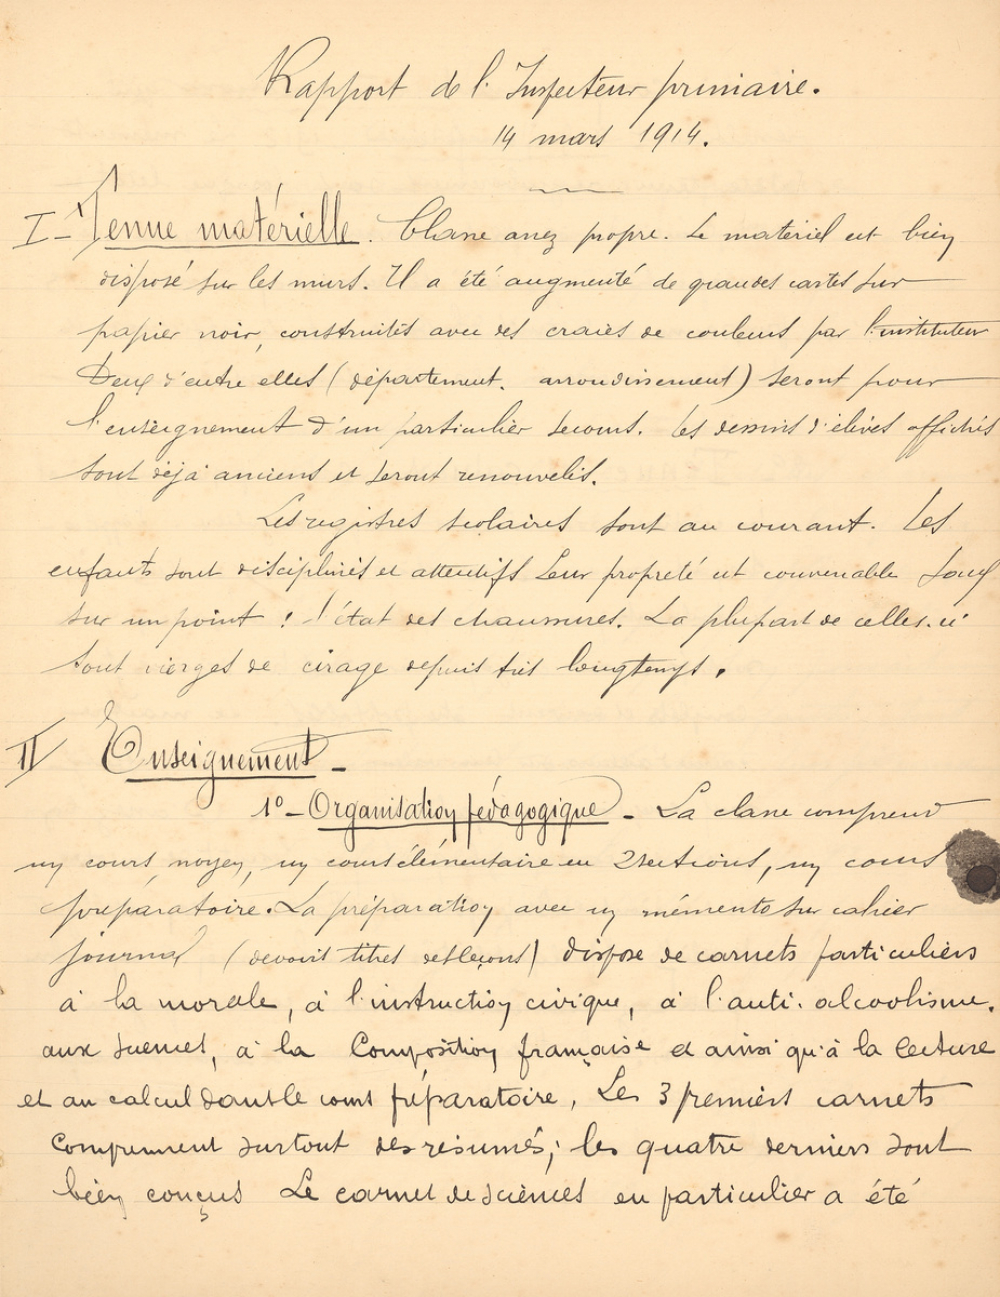 Rapport de l'Inspecteur primaire.
14 mars 1914.
I- Tenue matérielle. Classe assez propre. Le matériel est bien
disposé sur les murs. Il a été augmenté de grandes cartes sur
papier noir, construites avec des craies de couleurs par l'instituteur
Deux d'entre elles (département. arrondissement) seront pour
l'enseignement d'un particulier secours. Les dessins d'élèves affichés
sont déjà anciens et seront renouvelés.
Les registres scolaires sont au courant. Les
enfants sont disciplinés et attentifs Leur propreté est convenable sauf
sur un point : l'état des chaussures. La plupart de celles-ci
sont vierges de cirage depuis très longtemps.
II Enseignement -
1° - Organisation pédagogique - La classe comprend
un cours moyen, un cours élémentaire en 2 sections, un cours
préparatoire. La préparation avec un mémento sur cahier
journal (devoirs titres des leçons) dispose de carnets particuliers
à la morale, à l'instruction civique, à l'anti-alcoolisme.
aux sciences, à la Composition française et ainsi qu'à la lecture
et au calcul dans le cours préparatoire, Les 3 premiers carnets
comprennent surtout des résumés; les quatre derniers sont
bien conçus Le carnet de sciences en particulier a été